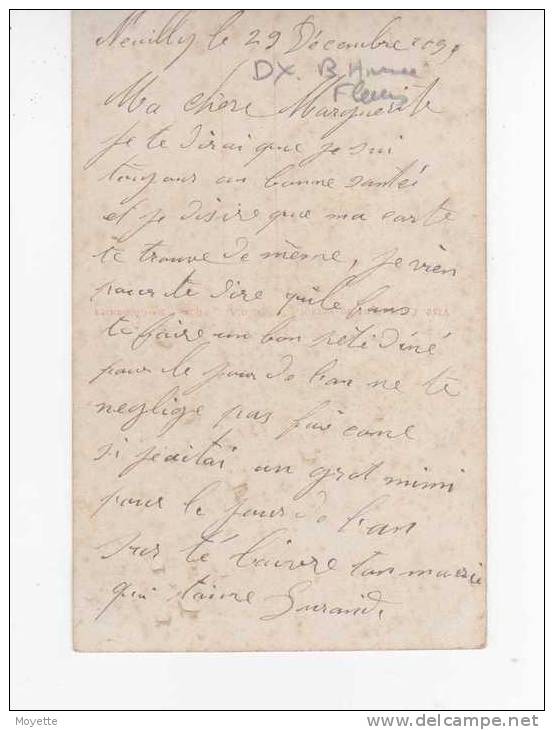 Neuilly le 29 Décembre
DX. B
Ma chere Marguerite
je te dirai que je sui
toujour en bonne santéi
et je désire que ma carte
te trouve de même, je vien
pour te dire qu'ile faus
te faire un bon petit diné
pour le jour de l'an ne te
neglige pas fais come
si jeaitai un grot mimi
pour le jour de l'an
sur té laivre ton marie
qui t'aime
Moyette
delcampe.net